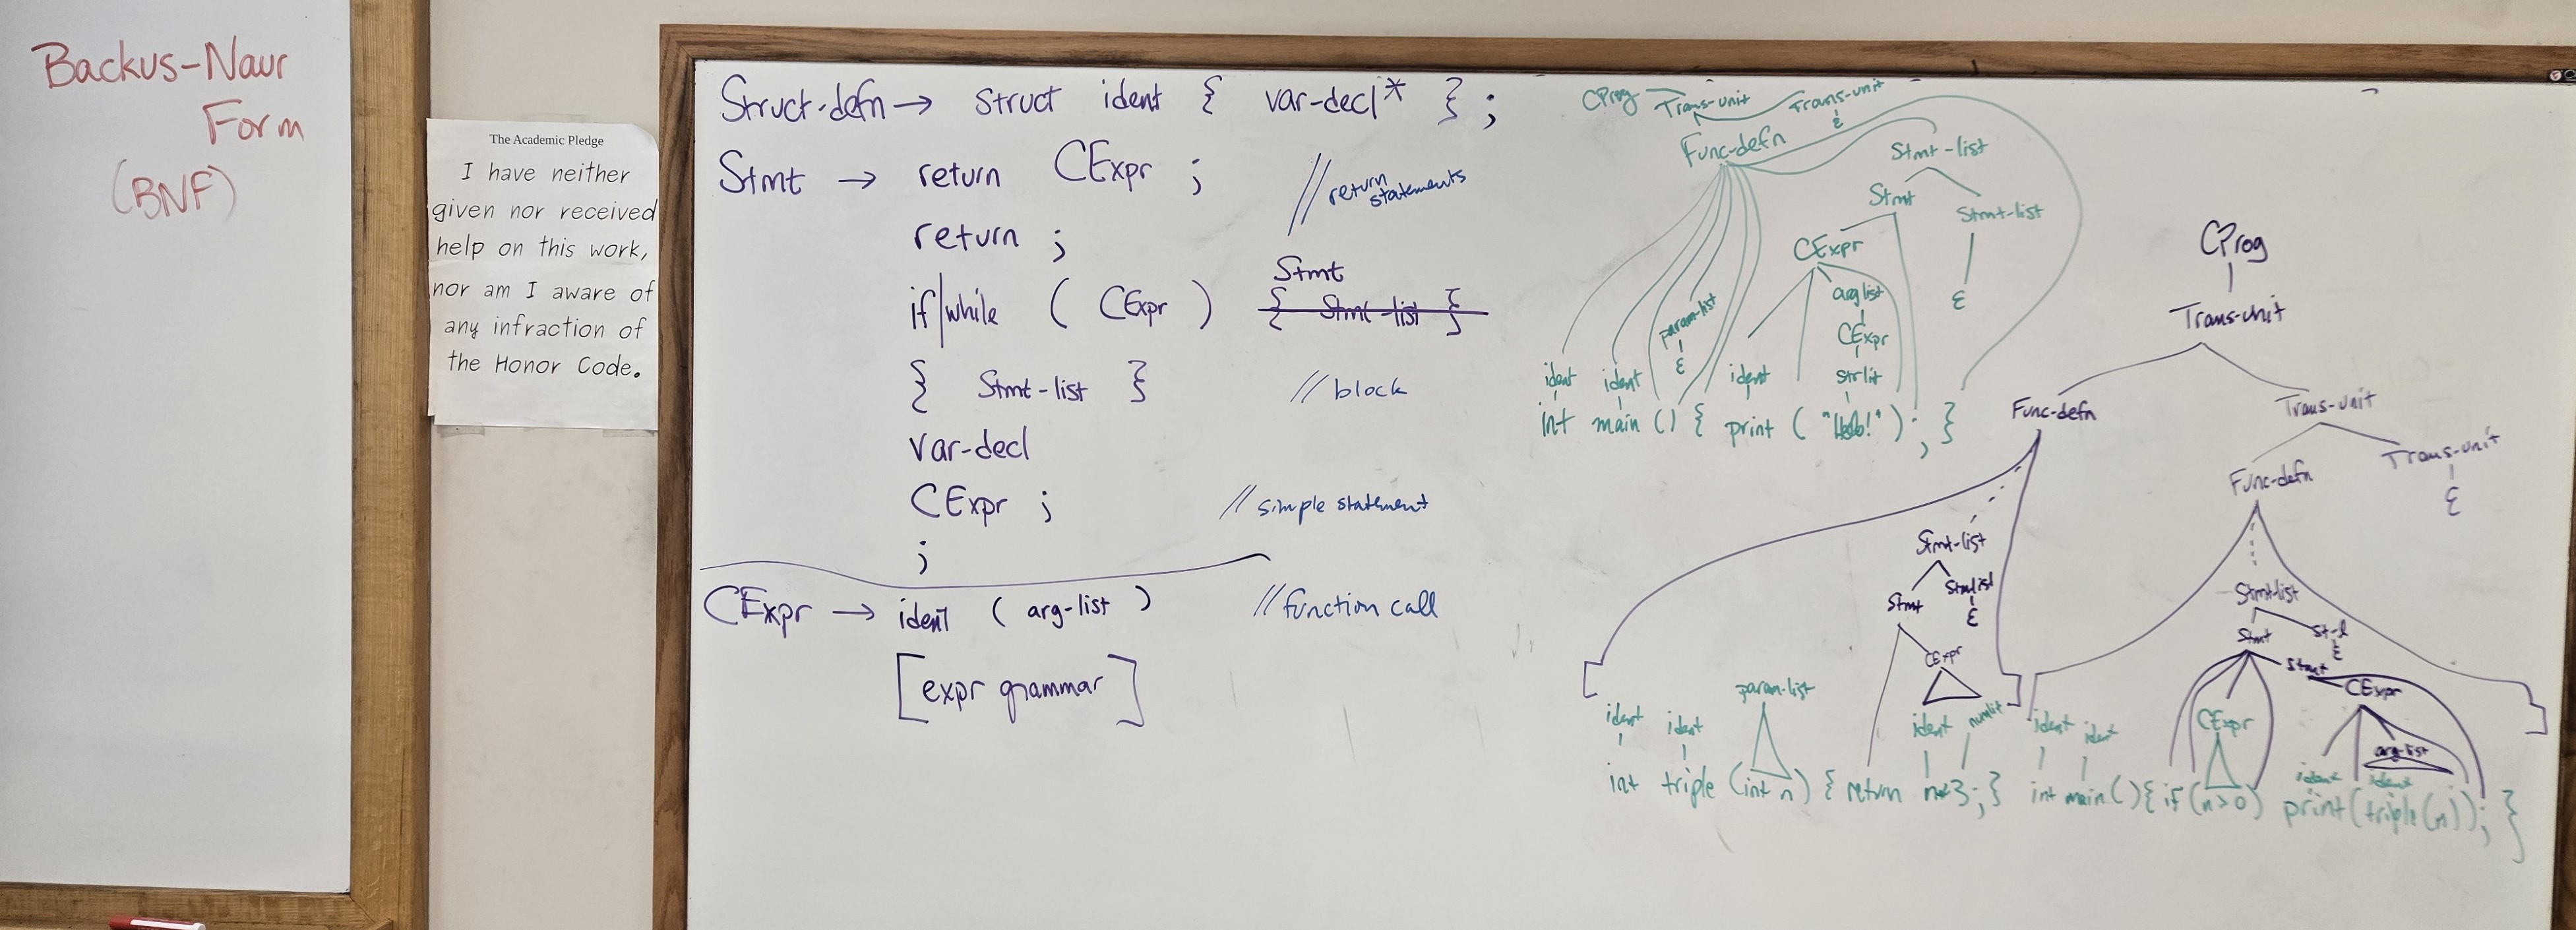 Backus-Naur
Form
(BNF)
The Academic Pledge
I have neither
given nor received
help on this work,
nor am I aware of
any infraction of
the Honor Code.
Struct-defn → struct ident { var-decl* } ;
Stmt → return CExpr ; // return statements
return ;
Stmt
if/while ( CExpr ) { Stmt-list }
{ Stmt-list } // block
var-decl
CExpr ; // simple statement
;
CExpr → ident ( arg-list ) // function call
[expr grammar]
CProg Trans-unit Trans-unit
ε
Func-defn Stmt-list
Stmt Stmt-list
CExpr
param-list arg list ε
ε CExpr
ident ident ident strlit
int main () { print ( "Hello!" ) ; }
CProg
Trans-unit
Func-defn Trans-unit
Func-defn Trans-unit
ε
Stmt-list
Stmt Stmtlist
ε
CExpr
Stmt-list
Stmt St-l
ε
Stmt
CExpr
param-list
CExpr
arg-list
ident ident ident numlit ident ident ident ident
int triple (int n) { return n*3; } int main () { if (n>0) print(triple(n)); }